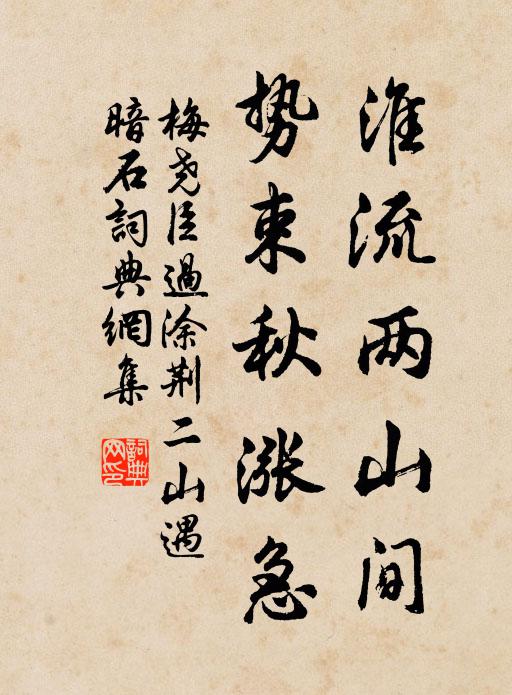 淮流两山间
势束秋涨急
梅尧臣過涂荆二山遇
暗石詞典網集
詞典网印